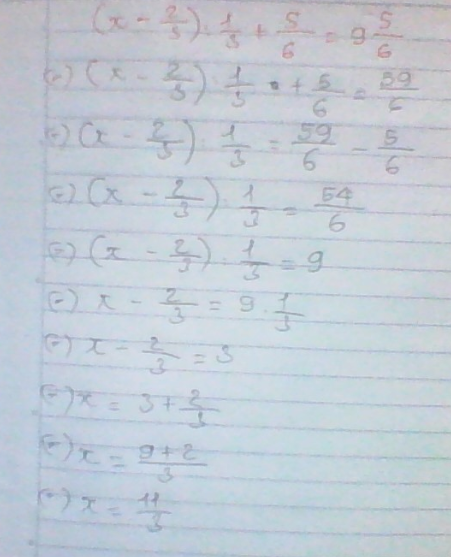 (x - 2/3) · 1/3 + 5/6 = 9 5/6
(=) (x - 2/3) · 1/3 + 5/6 = 59/6
(=) (x - 2/3) · 1/3 = 59/6 - 5/6
(=) (x - 2/3) · 1/3 = 54/6
(=) (x - 2/3) · 1/3 = 9
(=) x - 2/3 = 9 · 1/3
(=) x - 2/3 = 3
(=) x = 3 + 2/3
(=) x = 9+2/3
(=) x = 11/3